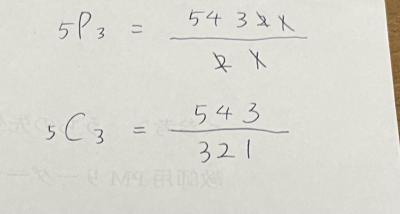 5P3 = 54321 / 21
5C3 = 543 / 321